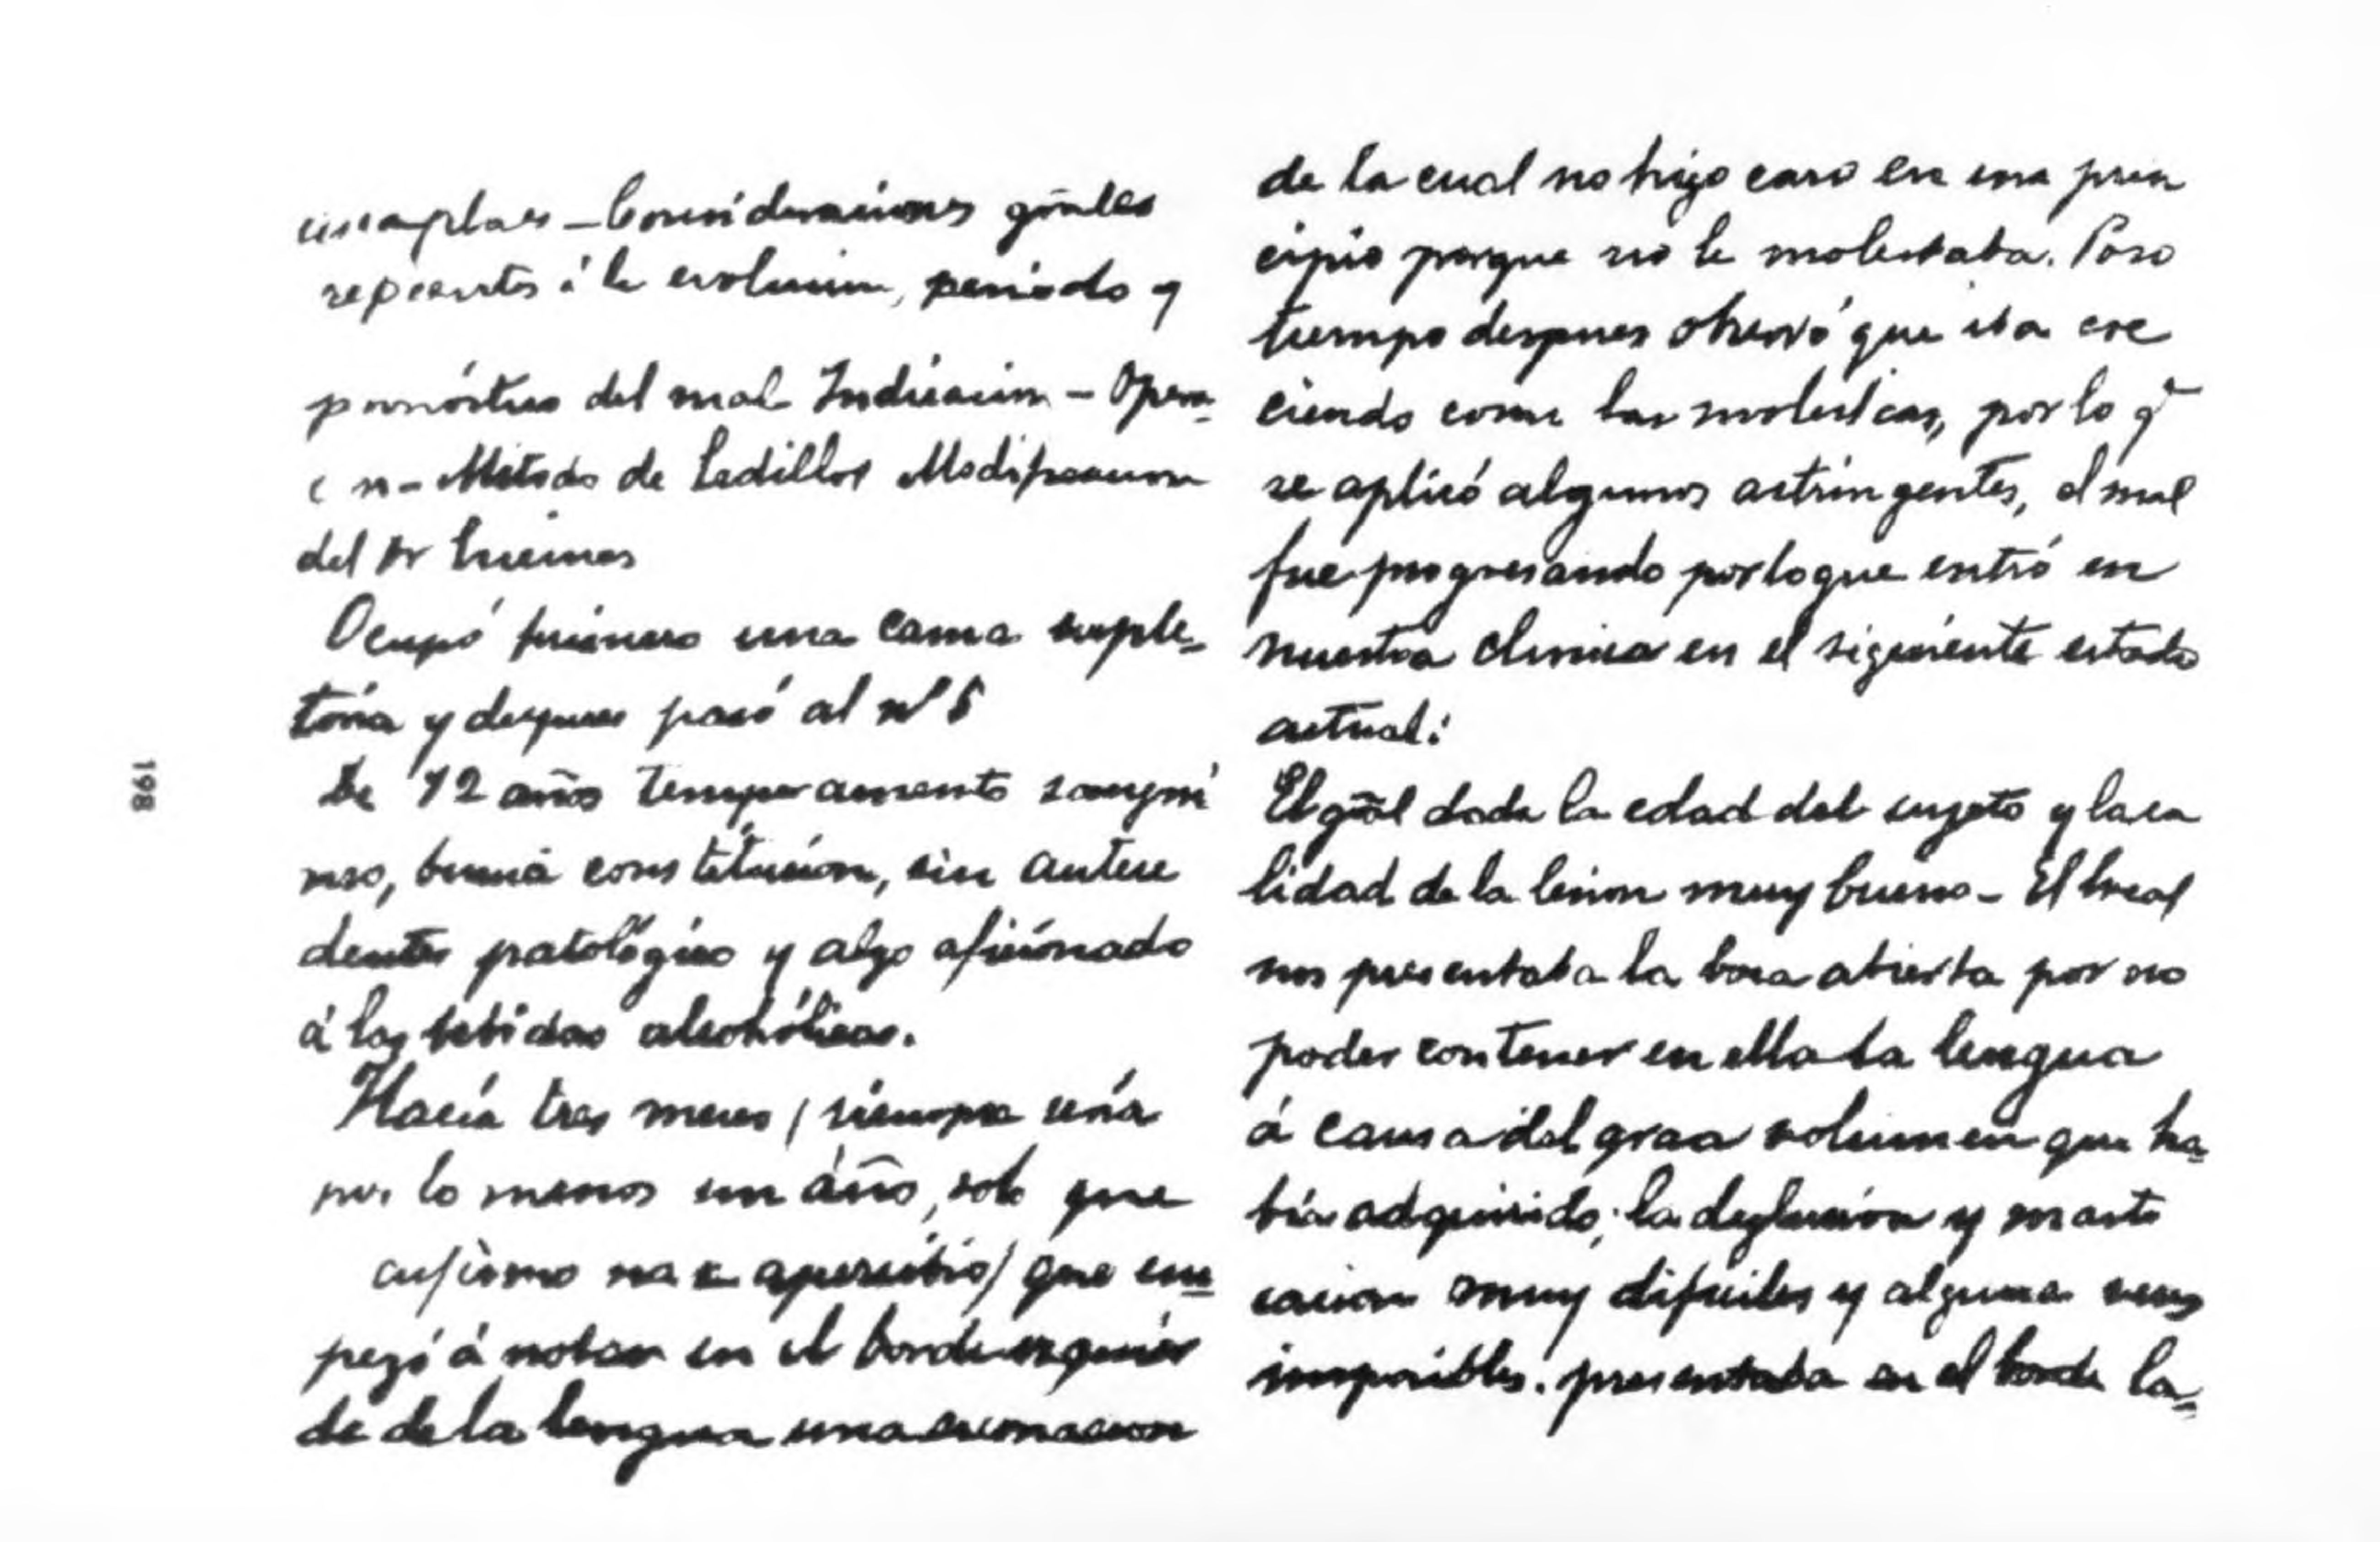 198
grāles
á la evolucion, periodo y
del mal Indicacion – Opera-
n – Metodo de Sedillot Modificacion
del Dr Creus
Ocupó primero una cama suple-
toria y despues pasó al nº 5
De 72 años temperamento sangui
neo, buena constitucion, sin antece
dentes patológico y algo aficionado
á las bebidas alcohólicas.
Hacía tres meses (siempre sería
por lo menos un año, solo que
no se apercibió) que em-
pezó á notar en el borde izquier
do de la lengua una
de la cual no hizo caso en un prin
cipio porque no le molestaba. Poco
tiempo despues observó que iba cre
ciendo como las molestias, por lo q̃
se aplicó algunos astringentes, el mal
fue progresando por lo que entró en
nuestra clinica en el siguiente estado
actual:
El grāl dada la edad del sugeto y la ca
lidad de la lesion muy bueno – El local
nos presentaba la boca abierta por no
poder contener en ella la lengua
á causa del gran volumen que ha-
bia adquirido; la deglucion y masti
cacion muy dificiles y alguna veces
imposibles. presentaba en el borde la-